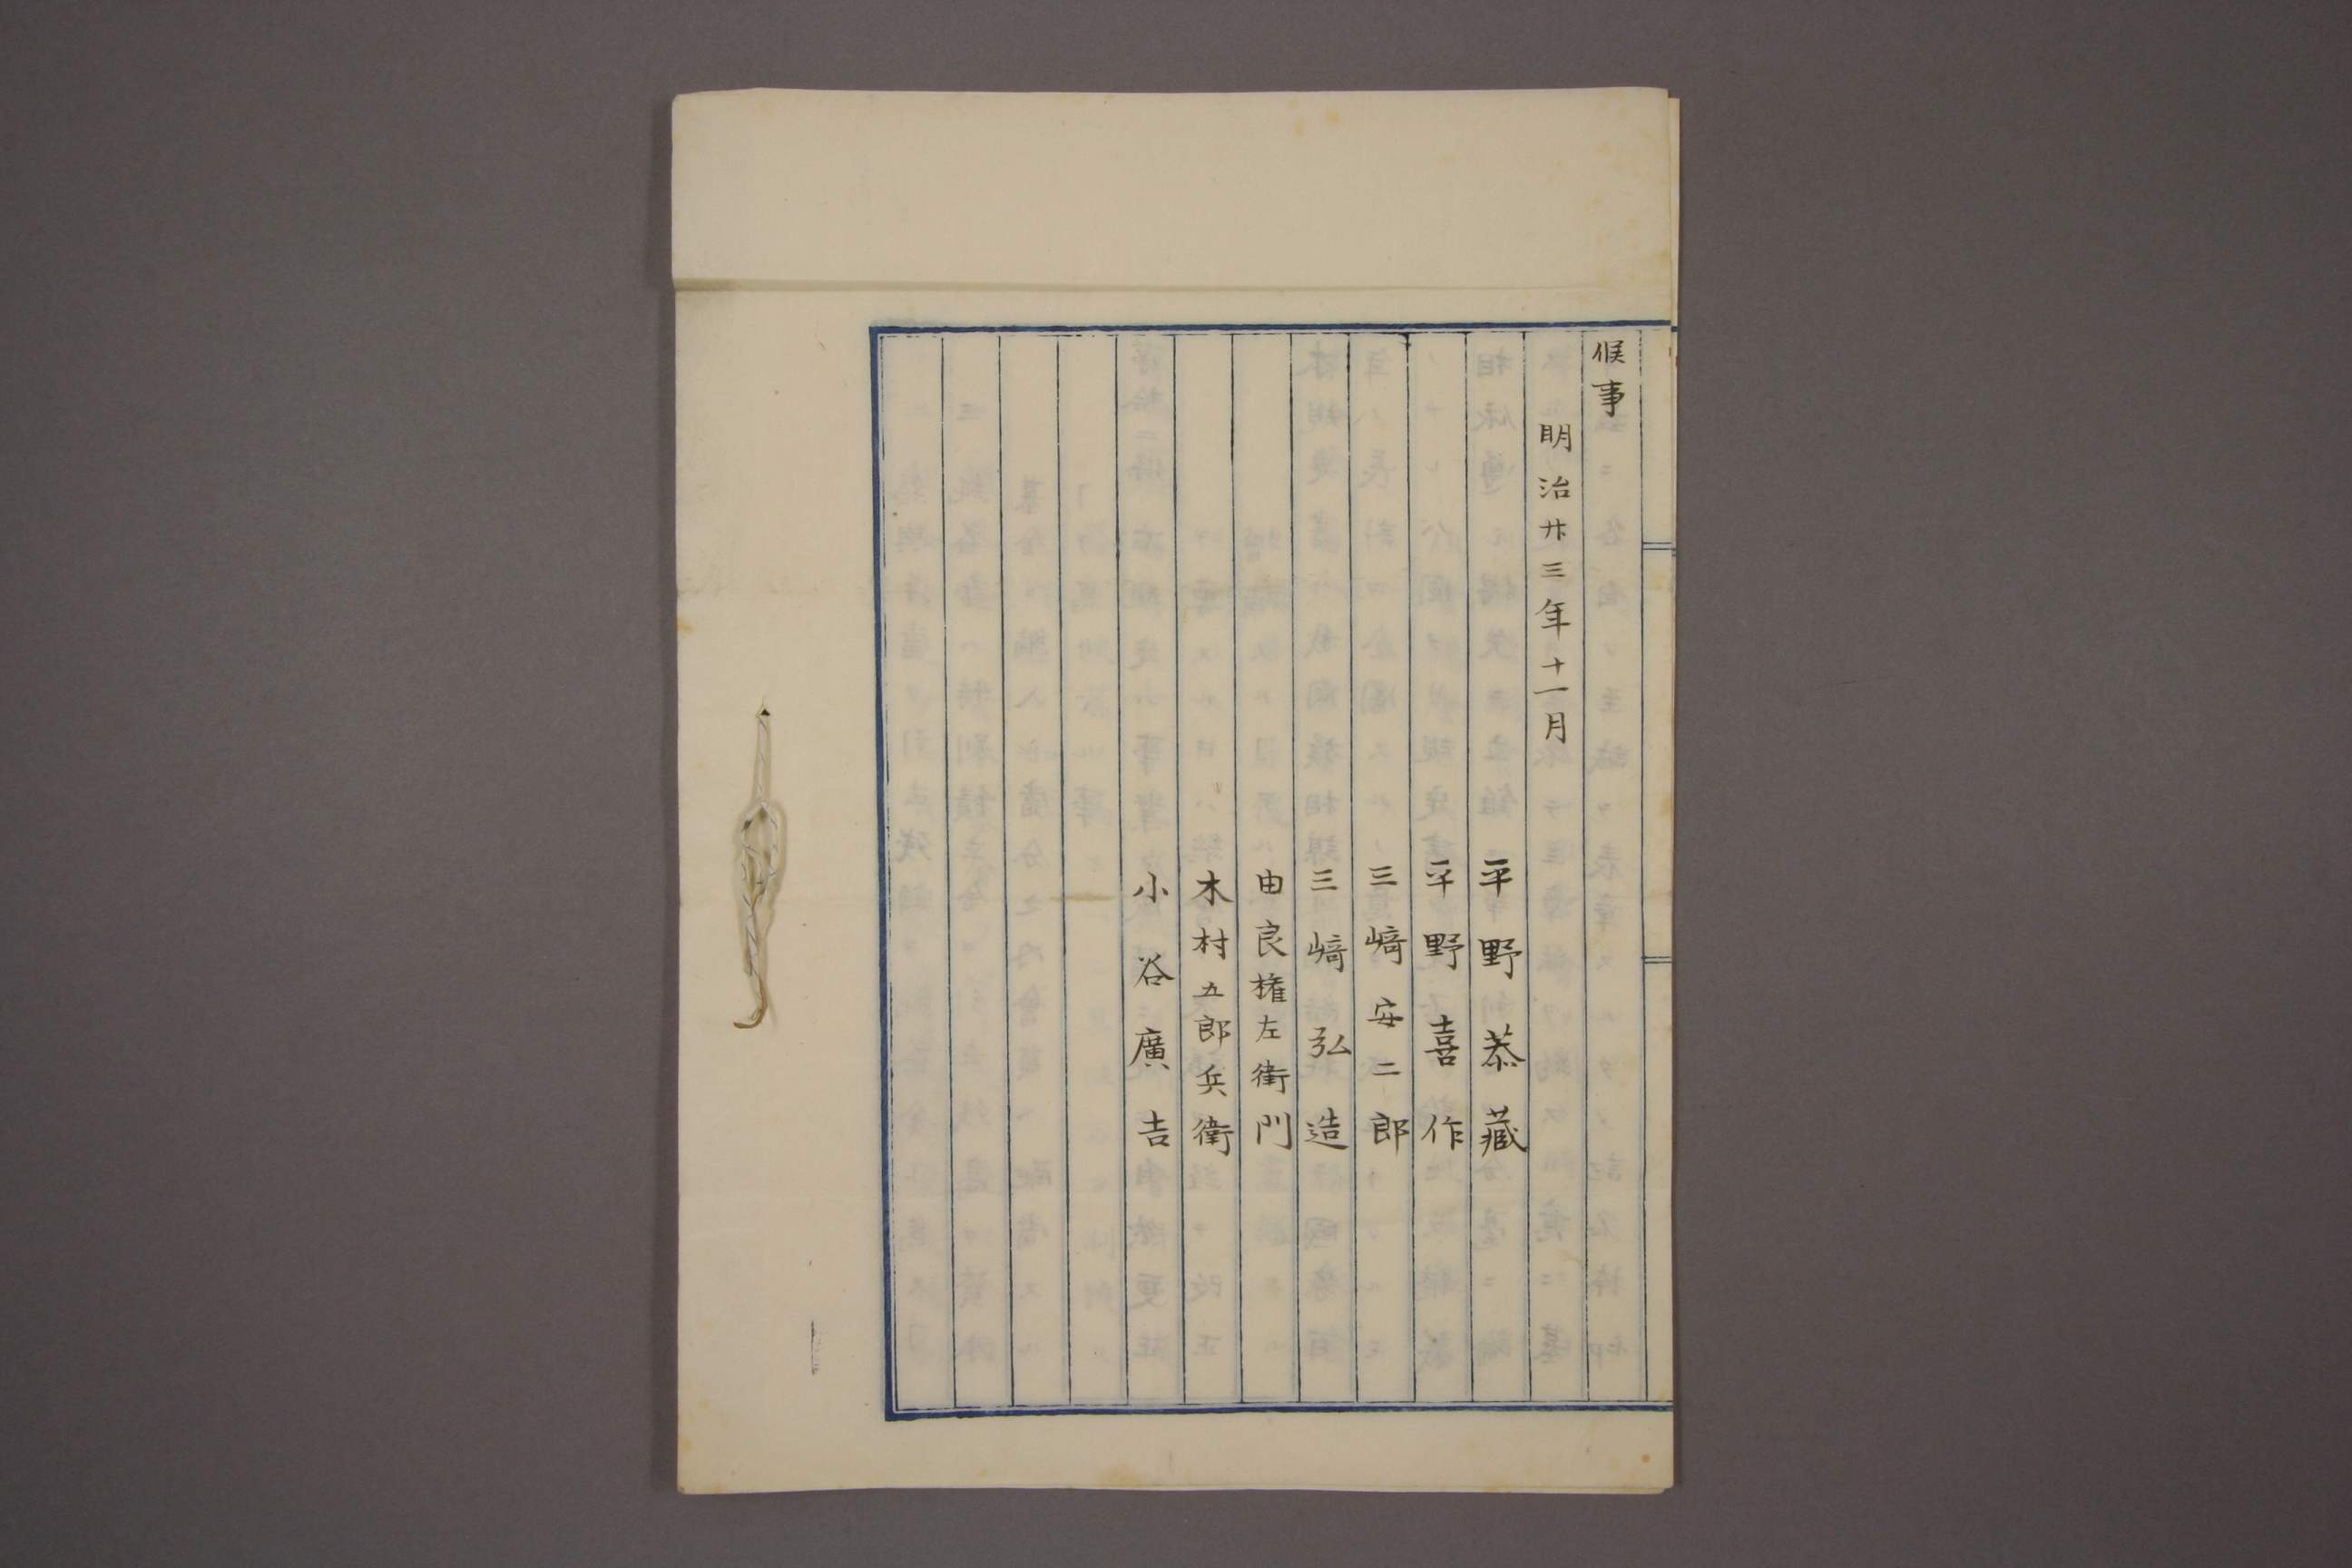 候事
明治廿三年十一月
平野恭藏
平野喜作
三﨑安二郎
三﨑弘造
由良権左衛門
木村五郎兵衛
小谷廣吉